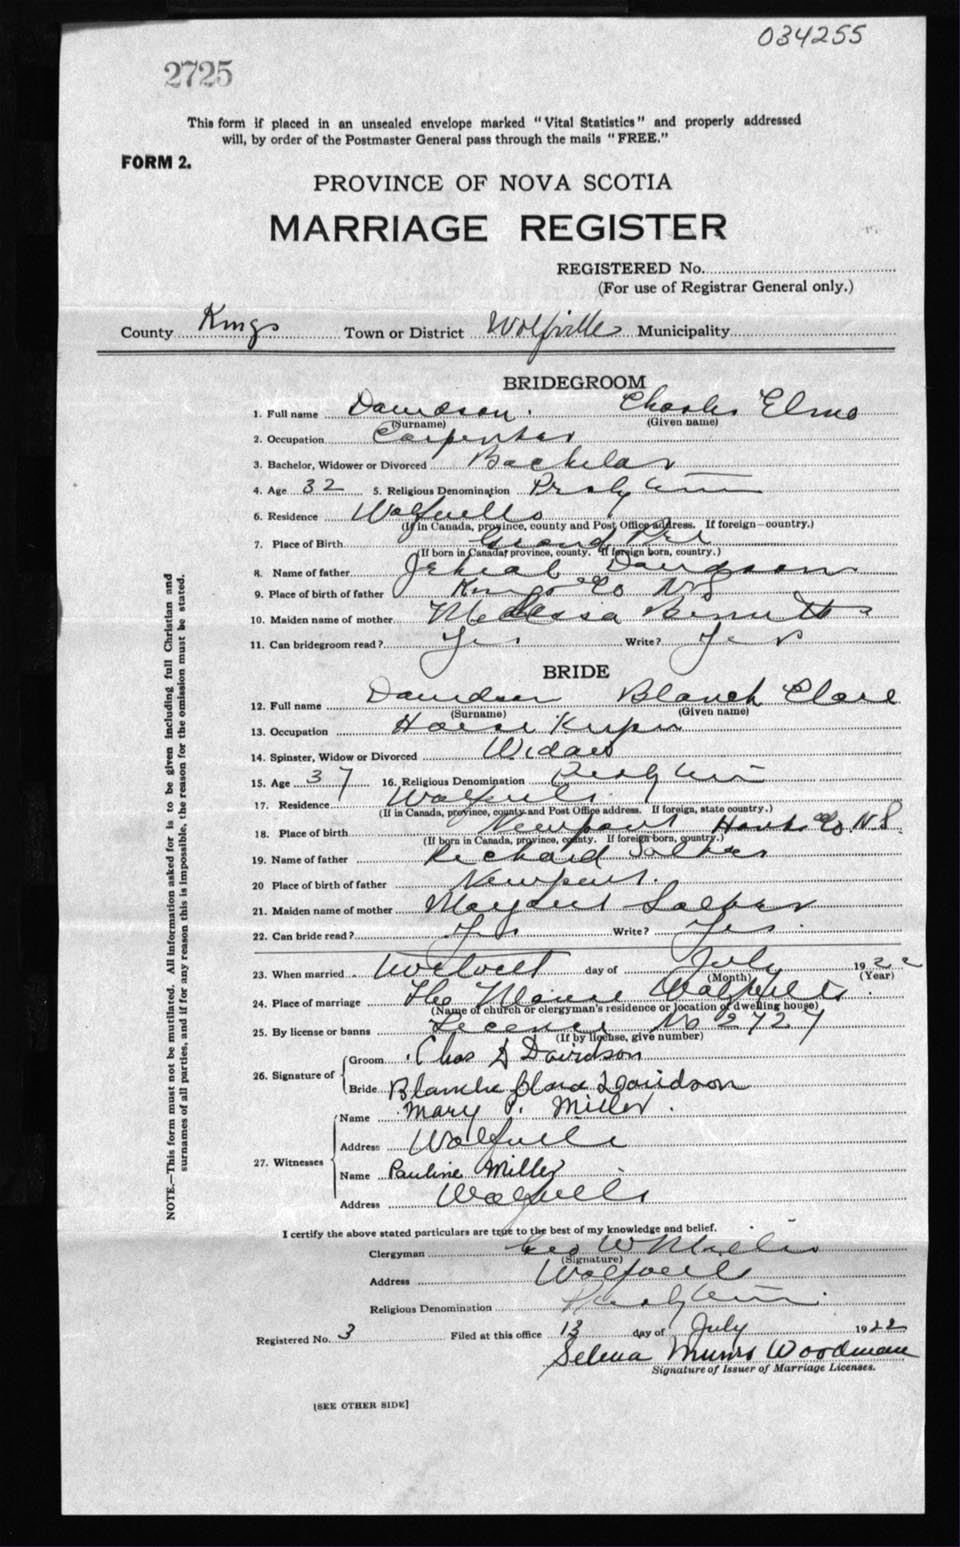 034255
2725
This form if placed in an unsealed envelope marked "Vital Statistics" and properly addressed
will, by order of the Postmaster General pass through the mails "FREE."
FORM 2.
PROVINCE OF NOVA SCOTIA
MARRIAGE REGISTER
REGISTERED No.
(For use of Registrar General only.)
County Kings Town or District Wolfville Municipality
BRIDEGROOM
1. Full name Davidson Charles Elmo
(Surname) (Given name)
2. Occupation Carpenter
3. Bachelor, Widower or Divorced Bachelor
4. Age 32 5. Religious Denomination Presbyterian
6. Residence Wolfville
(If in Canada, province, county and Post Office address. If foreign—country.)
7. Place of Birth Grand Pre
(If born in Canada, province, county. If foreign born, country.)
8. Name of father Davidson
9. Place of birth of father Kings Co N S
10. Maiden name of mother
11. Can bridegroom read? Yes Write? Yes
BRIDE
12. Full name Davidson Blanch Clare
(Surname) (Given name)
13. Occupation House Keeper
14. Spinster, Widow or Divorced Widow
15. Age 37 16. Religious Denomination Presbyterian
17. Residence Wolfville
(If in Canada, province, county and Post Office address. If foreign, state country.)
18. Place of birth Newport Hants Co N.S.
(If born in Canada, province, county. If foreign born, country.)
19. Name of father Richard
20 Place of birth of father Newport.
21. Maiden name of mother Margaret
22. Can bride read? Yes Write? Yes.
23. When married Twelveth day of July 1922
(Month) (Year)
24. Place of marriage The Manse Wolfville.
(Name of church or clergyman's residence or location of dwelling house)
25. By license or banns License No 2727
(If by license, give number)
26. Signature of
Groom Chas Davidson
Bride Blanche Davidson
27. Witnesses
Name Mary P. Miller.
Address Wolfville
Name Pauline Miller
Address Wolfville
I certify the above stated particulars are true to the best of my knowledge and belief.
Clergyman Geo W Miller
(Signature)
Address Wolfville
Religious Denomination Presbyterian.
Registered No. 3 Filed at this office 13 day of July 1922
Selena Munro Woodman
Signature of Issuer of Marriage Licenses.
[SEE OTHER SIDE]
NOTE.—This form must not be mutilated. All information asked for is to be given including full Christian and
surnames of all parties, and if for any reason this is impossible, the reason for the omission must be stated.